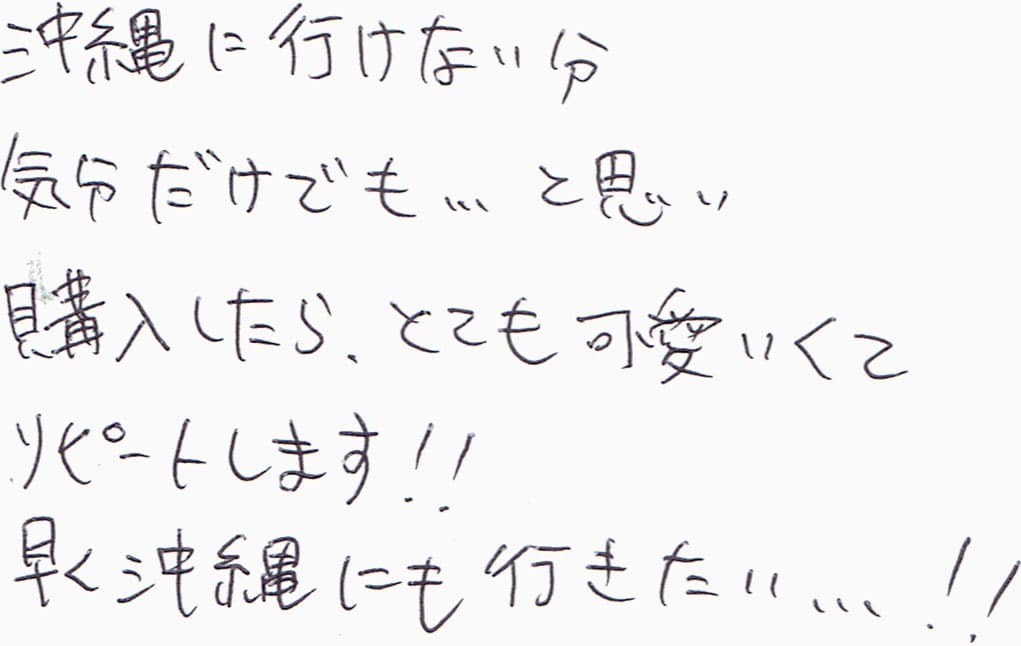 沖縄に行けない分
気分だけでも…と思い
購入したら、とても可愛いくて
リピートします!!
早く沖縄にも行きたい…!!